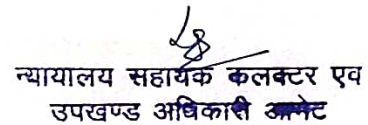 न्यायालय सहायक कलक्टर एव
उपखण्ड अधिकारी